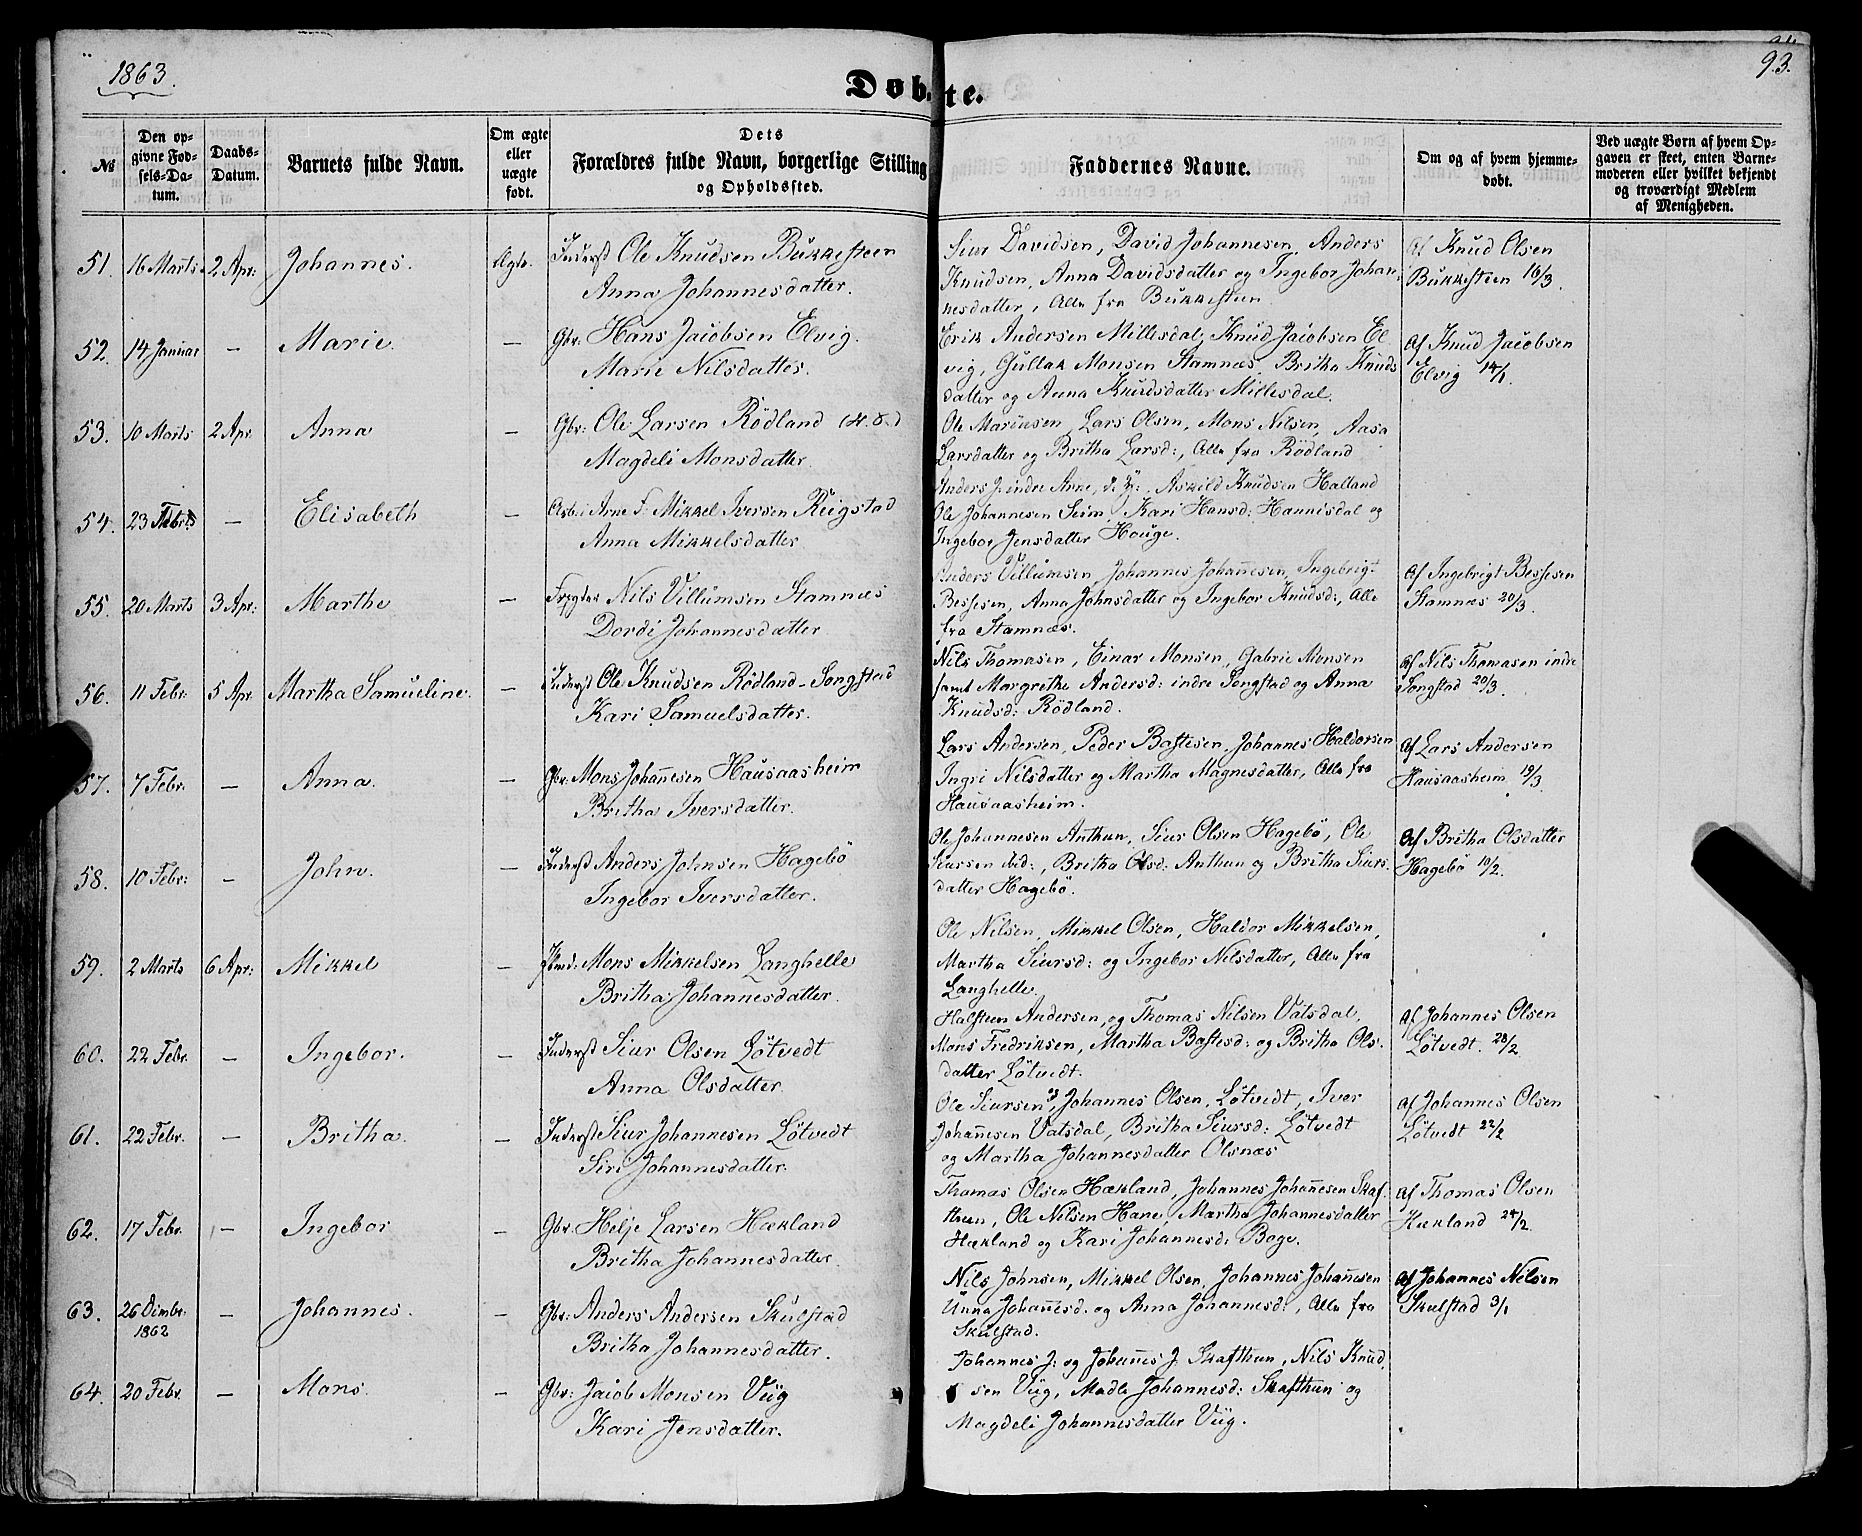 1863.
93.
Døbte.
№ | Den opgivne Fødsels-Datum. | Daabs-Datum. | Barnets fulde Navn. | Om ægte eller uægte født. | Dets Forældres fulde Navn, borgerlige Stilling og Opholdssted. | Faddernes Navne. | Om og af hvem hjemmedøbt. | Ved uægte Børn af hvem Opgaven er skeet, enten Barnemoderen eller hvilket bekjendt og troværdigt Medlem af Menigheden.
51. 16 Marts. 2 Apr: Johannes. Ægte. Inderst Ole Knudsen Bukkesteen
Anna Johannesdatter.
Siur Davidsen, David Johannesen, Anders
Knudsen, Anna Davidsdatter og Ingebor Johan-
nesdatter, Alle fra Bukkesteen.
Af Knud Olsen
Bukkesteen 16/3.
52. 14 Januar — Marie. — Gbr: Hans Jacobsen Elvig.
Marie Nilsdatter.
Erik Andersen Millesdal, Knud Jacobsen El
vig, Gullak Monsen Stamnæs, Britha Knuds
datter og Anna Knudsdatter Millesdal.
Af Knud Jacobsen
Elvig 14/1.
53. 10 Marts 2 Apr. Anna — Gbr: Ole Larsen Rödland
Magdeli Monsdatter.
Ole Larsen, Lars Olsen, Mons Nilsen, Aasa
Larsdatter og Britha Larsd:, Alle fra Rödland
54. 23 Febr. — Elisabeth — Mikkel Iversen Reigstad
Anna Mikkelsdatter
Askild Knudsen Halland
Ole Johannesen Seim Kari Hansd: Hannisdal og
Ingebor Jensdatter Houge.
55. 20 Marts 3 Apr: Marthe — Nils Villumsen Stamnæs
Dordi Johannesdatter.
Anders Villumsen, Johannes Johañesen, Ingebrigt
Bessesen, Anna Johnsdatter og Ingebor Knudsd:, Alle
fra Stamnæs.
Af Ingebrigt Bessesen
Stamnæs 20/3.
56. 11 Febr. 5 Apr. Martha Samueline. — Inderst Ole Knudsen Rödland-Songstad
Kari Samuelsdatter.
Nils Thomasen, Einar Monsen, Gabriel Monsen
samt Margrethe Andersd: indre Songstad og Anna
Knudsd: Rödland.
Af Nils Thomasen indre
Songstad 20/3.
57. 7 Febr. — Anna. — Gbr: Mons Johañesen Hausaasheim
Britha Iversdatter.
Lars Andersen, Peder Bastesen, Johannes Haldorsen
Ingri Nilsdatter og Martha Magnesdatter, Alle fra
Hausaasheim.
Af Lars Andersen
Hausaasheim 19/3.
58. 10 Febr: — John. — Inderst Anders Johnsen Hagebö
Ingebor Iversdatter.
Ole Johannesen Anthun, Siur Olsen Hagebö, Ole
Siursen ibid:, Britha Olsd: Anthun og Britha Siurs-
datter Hagebö.
Af Britha Olsdatter
Hagebö 10/2.
59. 2 Marts 6 Apr: Mikkel — Mons Mikkelsen Langhelle
Britha Johannesdatter.
Ole Nilsen, Mikkel Olsen, Haldor Mikkelsen,
Martha Siursd: og Ingebor Nilsdatter, Alle fra
Langhelle.
60. 22 Febr. — Ingebor. — Inderst Siur Olsen Lötvedt
Anna Olsdatter.
Halsteen Andersen, og Thomas Nilsen Vatsdal,
Mons Fredriksen, Martha Bastesd: og Britha Ols-
datter Lötvedt.
Af Johannes Olsen
Lötvedt. 28/2.
61. 22 Febr. — Britha. — Inderst Siur Johannesen Lötvedt
Siri Johannesdatter.
Ole Siursen og Johannes Olsen, Lötvedt, Iver
Johañesen Vatsdal, Britha Siursd: Lötvedt
og Martha Johannesdatter Olsnæs
Af Johannes Olsen
Lötvedt 22/2
62. 17 Febr. — Ingebor — Gbr. Helje Larsen Hækland
Britha Johannesdatter
Thomas Olsen Hækland, Johannes Johañesen Skaf-
thun, Ole Nilsen Hane, Martha Johannesdatter
Hækland og Kari Johannesd: Boge.
Af Thomas Olsen
Hækland 24/2.
63. 26 Dcmbr. 1862 — Johannes. — Gbr: Anders Andersen Skulstad
Britha Johannesdatter.
Nils Johnsen, Mikkel Olsen, Johannes Johañesen
Unna Johañesd. og Anna Johannesd:, Alle fra
Skulstad.
Af Johannes Nilsen
Skulstad 3/1
64. 20 Febr. — Mons. — Gbr: Jacob Monsen Viig
Kari Jensdatter.
Johannes J: og Johañes J. Skafthun, Nils Knud
sen Viig, Madle Johannesd: Skafthun og
Magdeli Johannesdatter Viig.